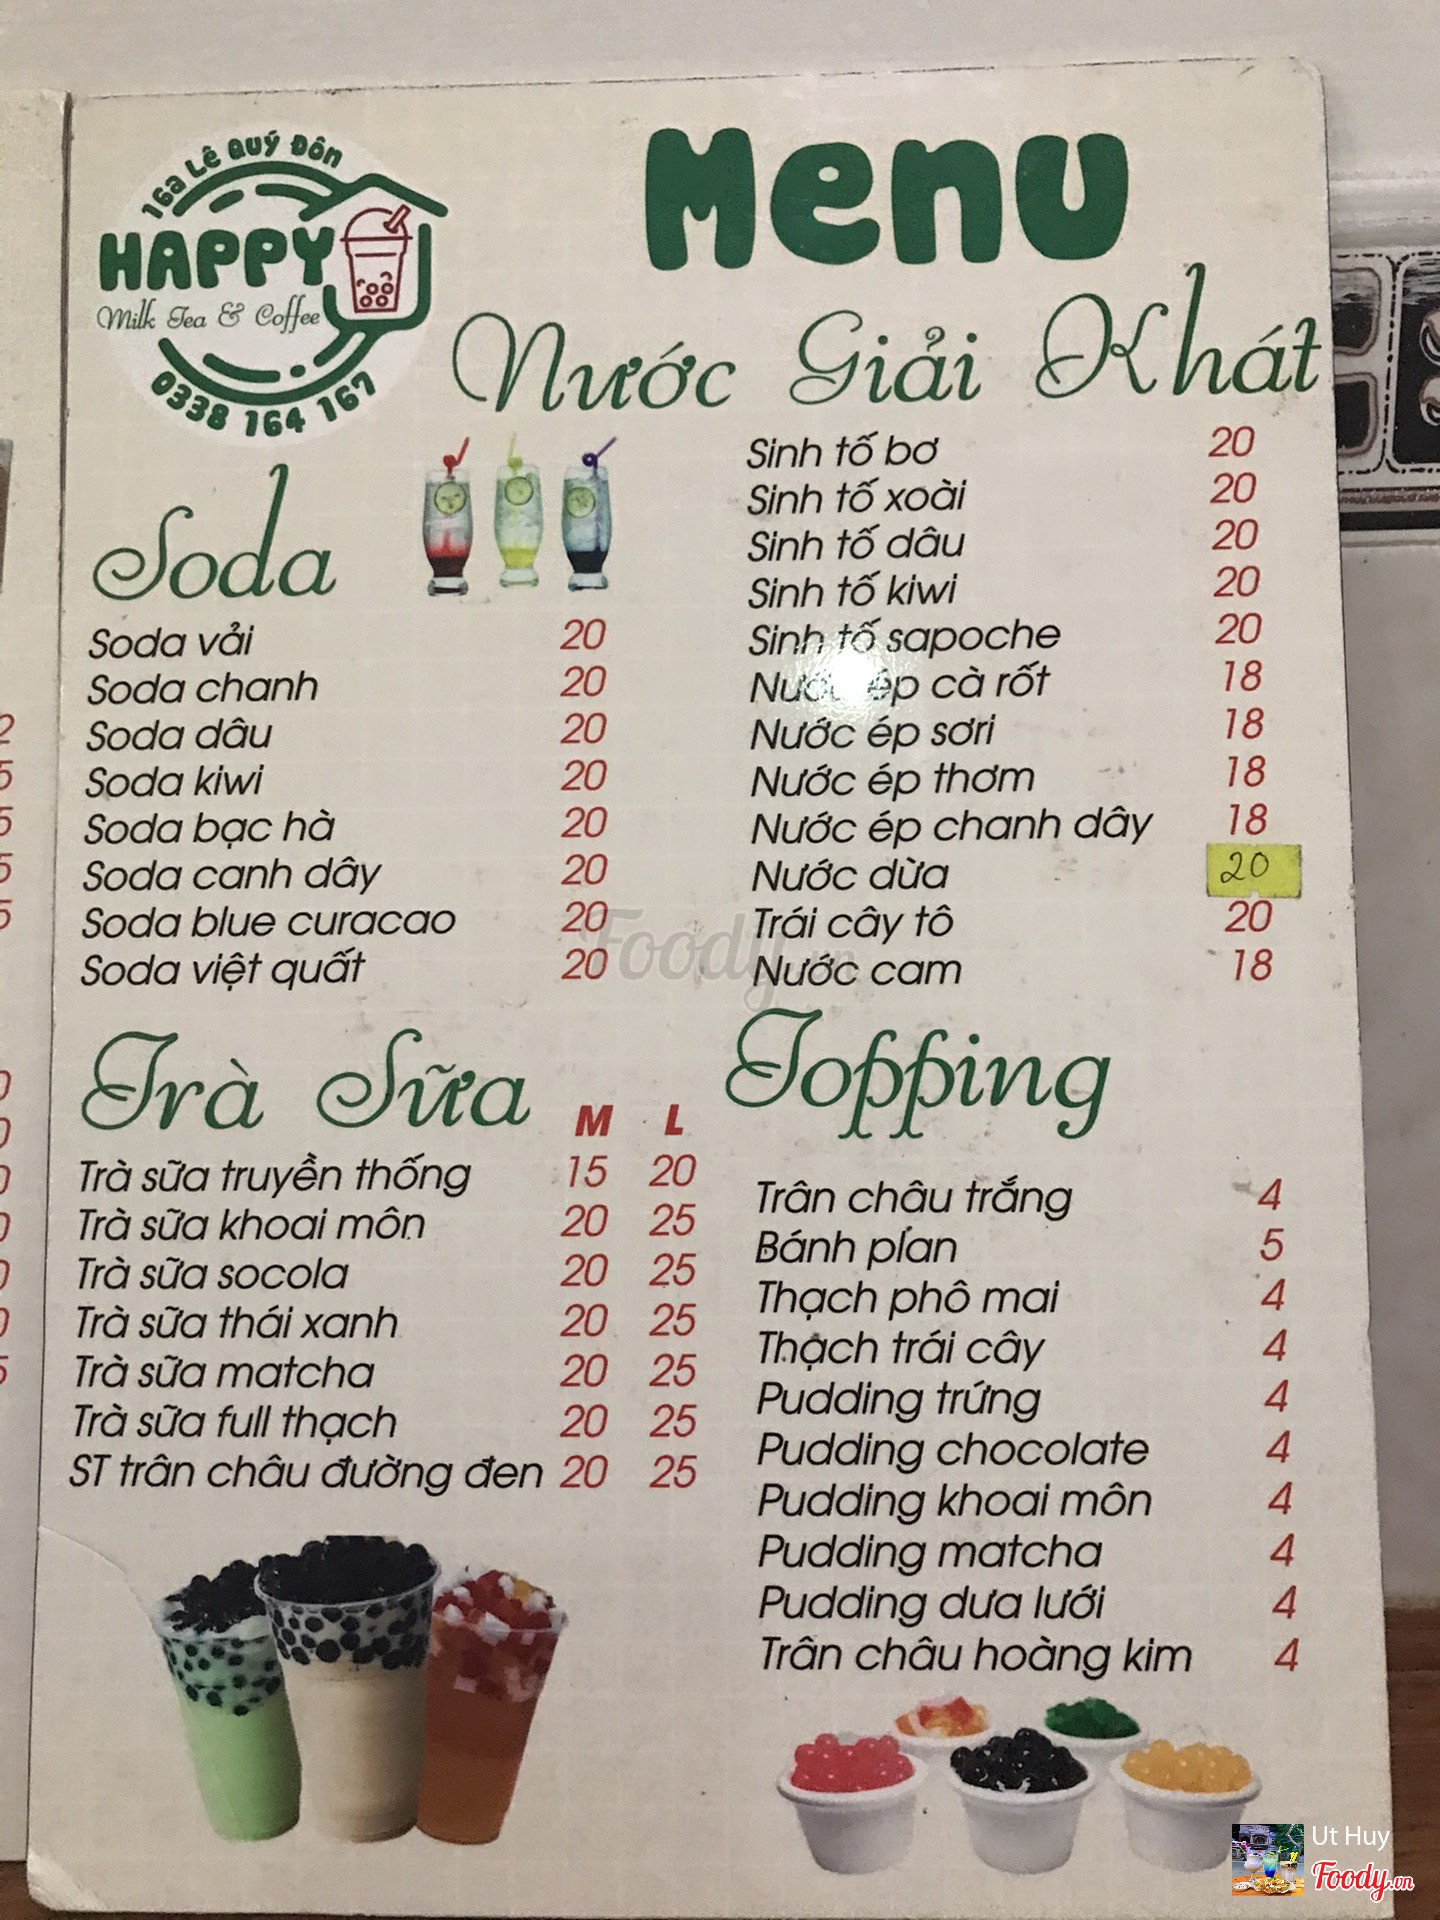 16a Lê Quý Đôn
HAPPY
Milk Tea & Coffee
0338 164 167
Menu
Nước Giải Khát
Sinh tố bơ 20
Sinh tố xoài 20
Sinh tố dâu 20
Sinh tố kiwi 20
Sinh tố sapoche 20
Nước ép cà rốt 18
Nước ép sơri 18
Nước ép thơm 18
Nước ép chanh dây 18
Nước dừa 20
Trái cây tô 20
Nước cam 18
Soda
Soda vải 20
Soda chanh 20
Soda dâu 20
Soda kiwi 20
Soda bạc hà 20
Soda canh dây 20
Soda blue curacao 20
Soda việt quất 20
Foody.vn
Trà Sữa M L
Trà sữa truyền thống 15 20
Trà sữa khoai môn 20 25
Trà sữa socola 20 25
Trà sữa thái xanh 20 25
Trà sữa matcha 20 25
Trà sữa full thạch 20 25
ST trân châu đường đen 20 25
Topping
Trân châu trắng 4
Bánh plan 5
Thạch phô mai 4
Thạch trái cây 4
Pudding trứng 4
Pudding chocolate 4
Pudding khoai môn 4
Pudding matcha 4
Pudding dưa lưới 4
Trân châu hoàng kim 4
Ut Huy
Foody.vn